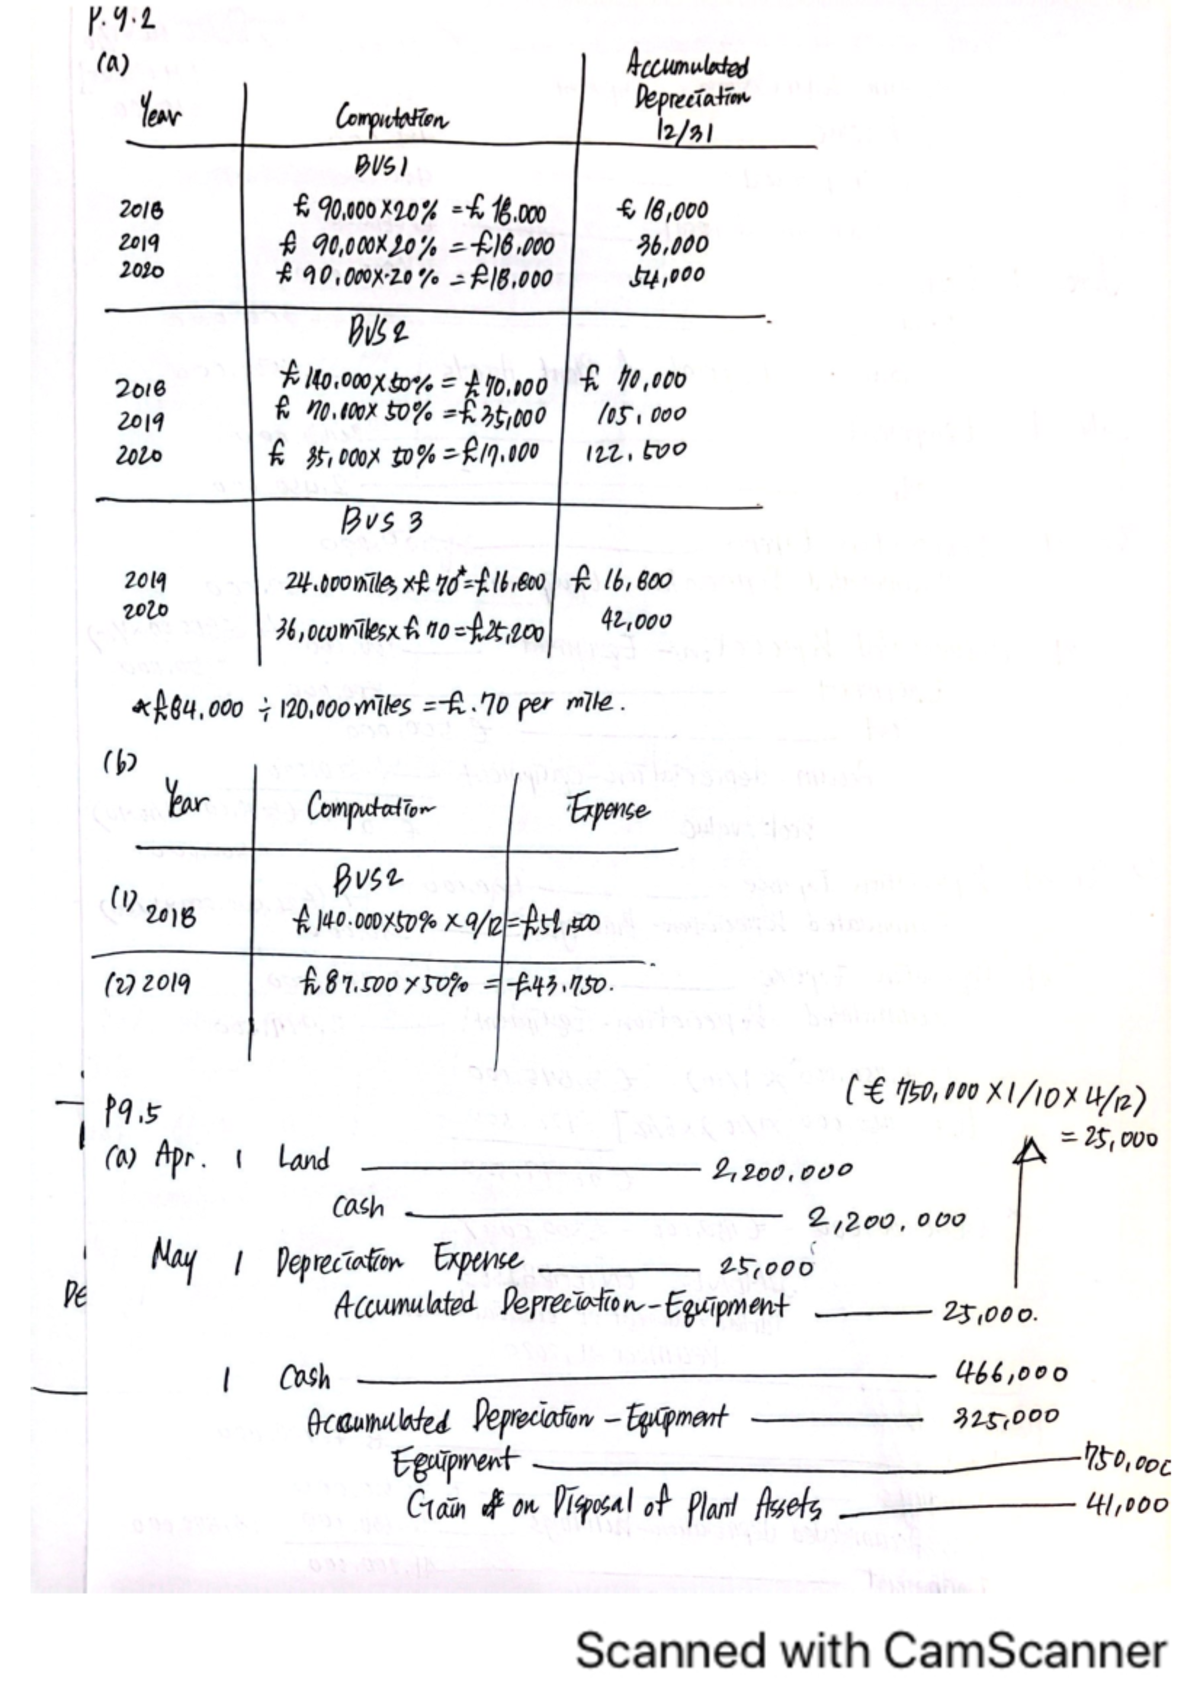 P.9.2
(a)
Year Computation Accumulated Depreciation 12/31
BUS1
2018 £ 90,000 X 20% = £ 18.000 £ 18,000
2019 £ 90,000 X 20% = £18,000 36,000
2020 £ 90.000 X 20% = £18,000 54,000
BUS 2
2018 £ 140.000 X 50% = £ 70.000 £ 70,000
2019 £ 70.000 X 50% = £ 35,000 105,000
2020 £ 35,000 X 50% = £17.000 122.500
BUS 3
2019 24.000 miles x £ 70* = £16,800 £ 16,800
2020 36,000 miles x £ 70 = £25,200 42,000
* £84.000 ÷ 120,000 miles = £.70 per mile.
(b)
Year Computation Expense
BUS2
(1) 2018 £ 140.000 X 50% X 9/12 = £52,500
(2) 2019 £ 87.500 X 50% = £43.750.
P9.5
(€ 750,000 X 1/10 X 4/12)
= 25,000
(a) Apr. 1 Land 2,200.000
Cash 2,200.000
May 1 Depreciation Expense 25,000
Accumulated Depreciation-Equipment 25,000.
1 Cash 466,000
Accumulated Depreciation - Equipment 325,000
Equipment 750,000
Gain on Disposal of Plant Assets 41,000
DE
Scanned with CamScanner